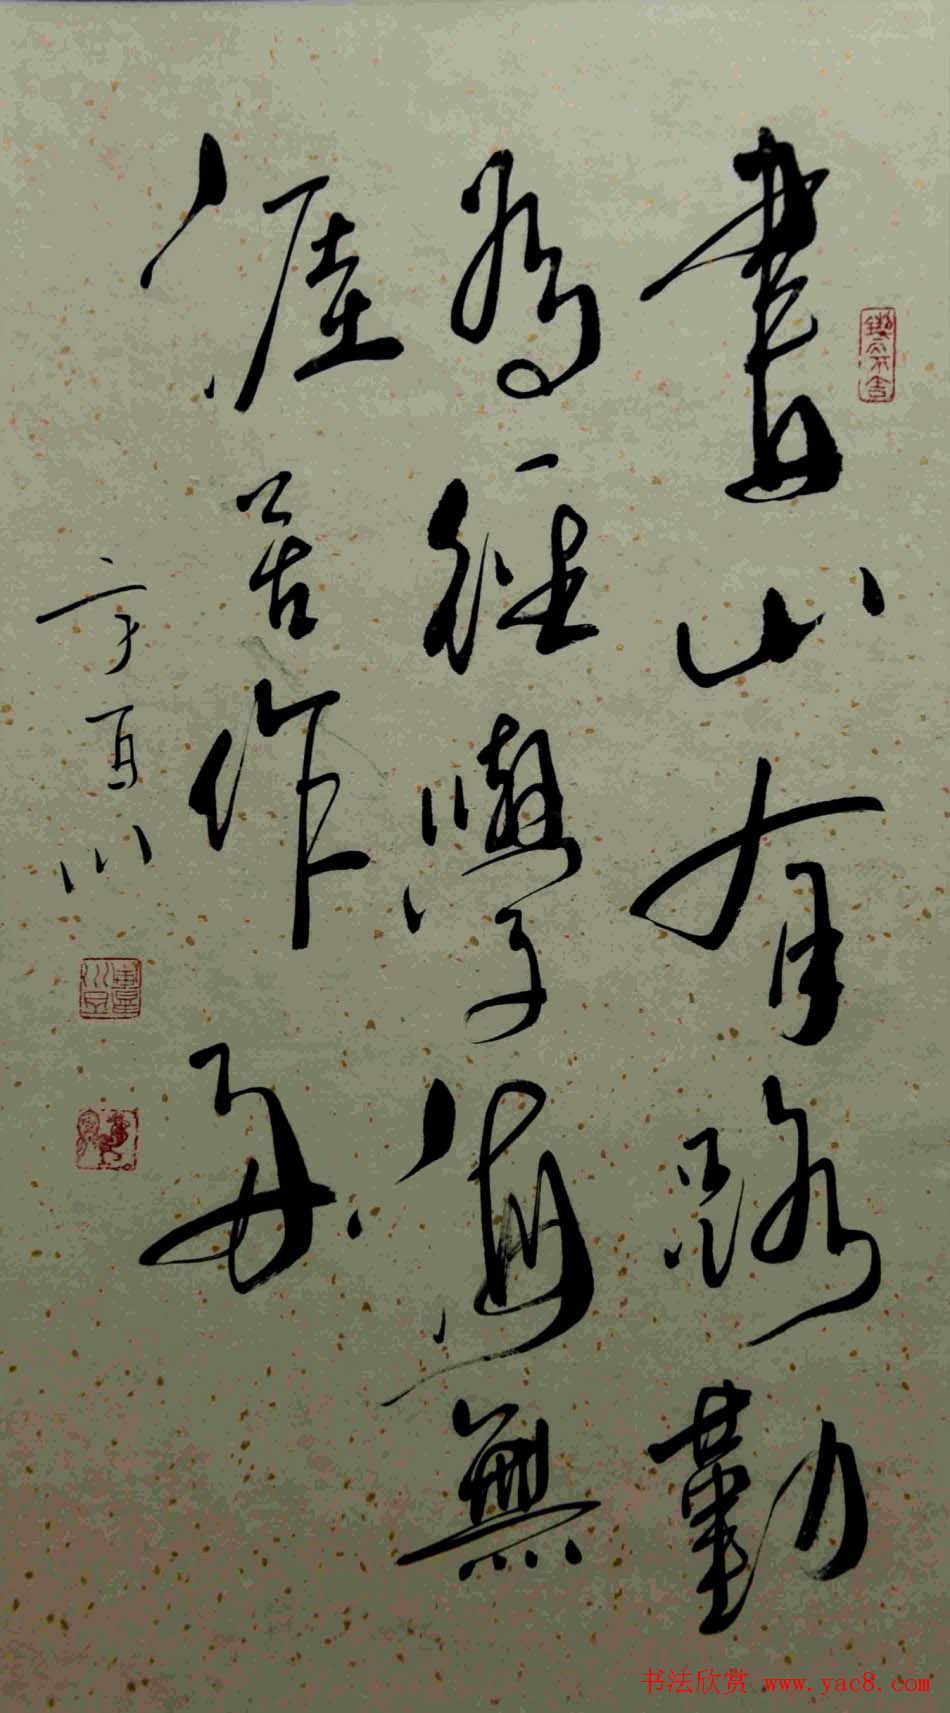 書山有路勤
為徑學海無
涯苦作舟
百川
鍥而不舍
书法欣赏 www.yac8.com